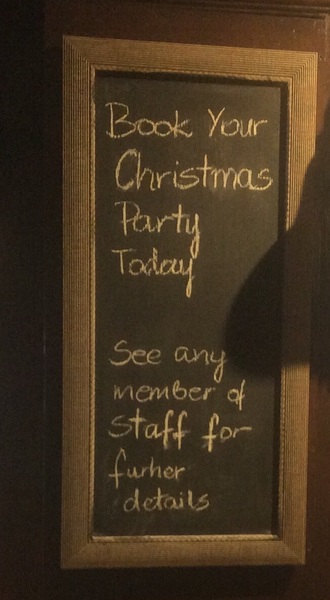 Book Your
Christmas
Party
Today
See any
member of
Staff for
furher
details